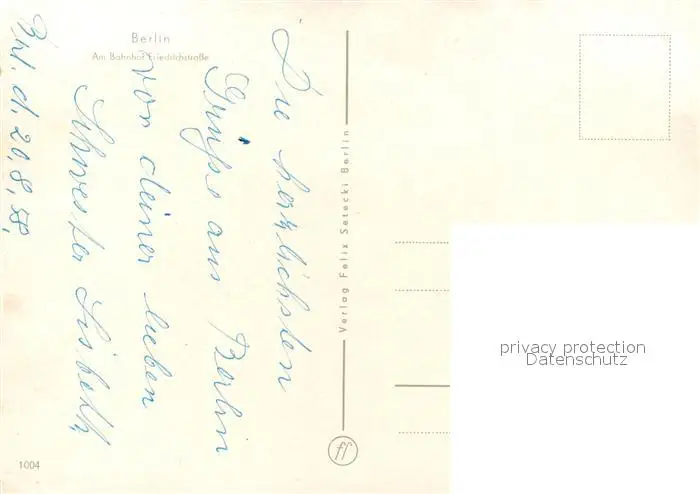 Berlin
Am Bahnhof Friedrichstraße
Brl. d. 20.8.58,
Die herzlichsten
Grüße aus Berlin
von deiner lieben
Schwester Lisbeth
Verlag Felix Setecki Berlin
ff
1004
privacy protection
Datenschutz